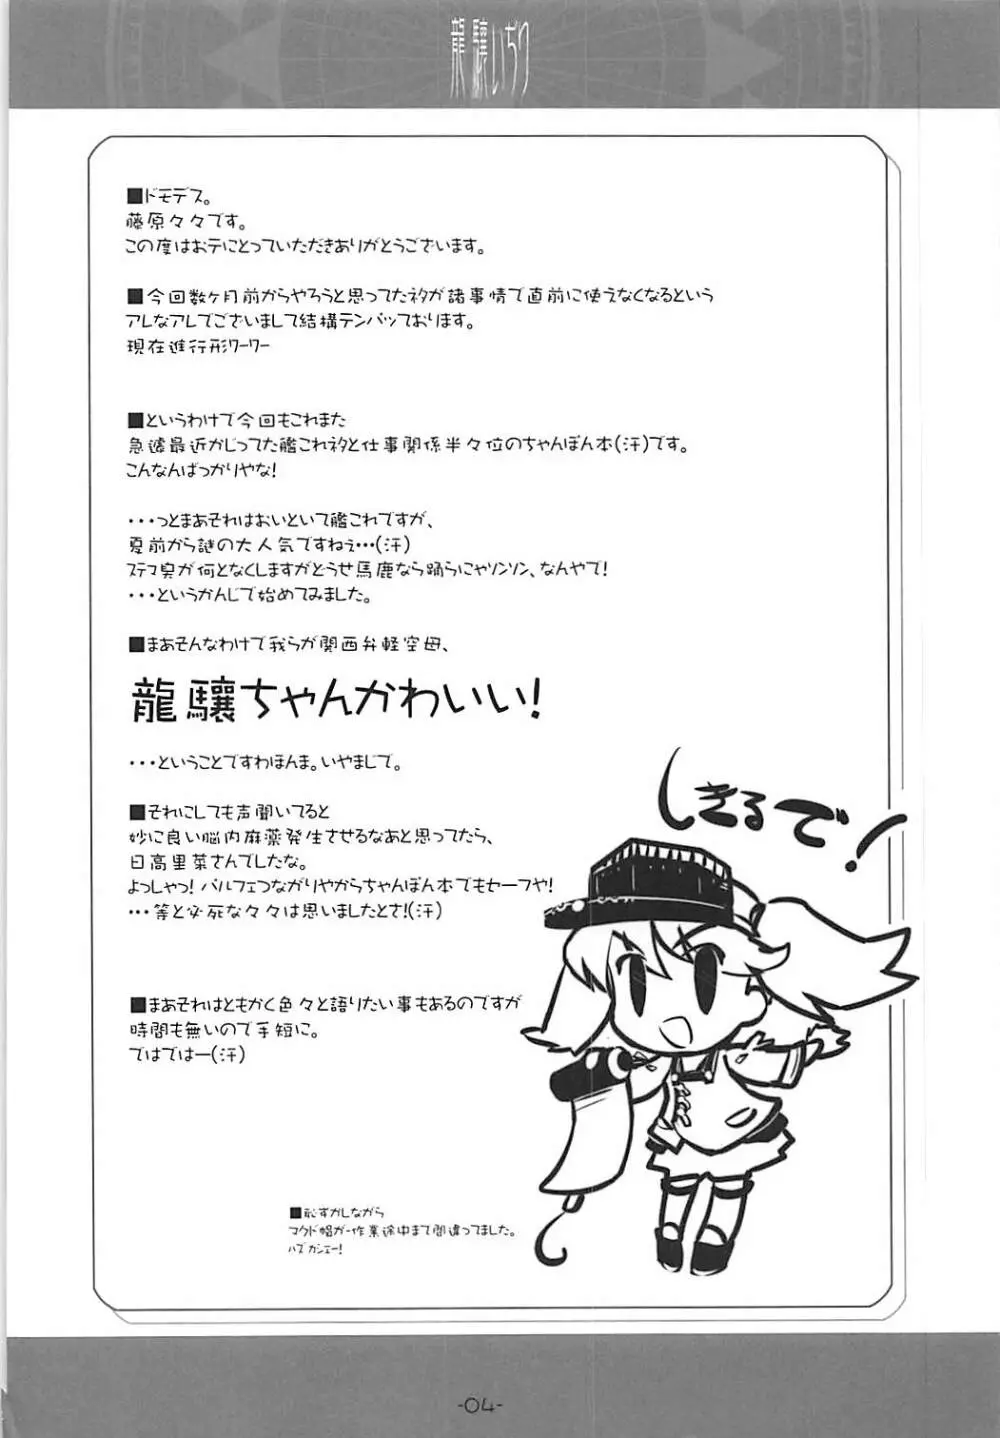 龍驤いぢり
■ドモデス。
藤原々々です。
この度はお手にとっていただきありがとうございます。
■今回数ヶ月前からやろうと思ってたネタが諸事情で直前に使えなくなるという
アレなアレでございまして結構テンパッております。
現在進行形ワーワー
■というわけで今回もこれまた
急遽最近かじってた艦これネタと仕事関係半々位のちゃんぽん本(汗)です。
こんなんばっかりやな!
・・・っとまあそれはおいといて艦これですが、
夏前から謎の大人気ですねぇ・・・(汗)
ステマ臭が何となくしますがどうせ馬鹿なら踊らにゃソンソン、なんやで!
・・・というかんじで始めてみました。
■まあそんなわけで我らが関西弁軽空母、
龍驤ちゃんかわいい!
・・・ということですわほんま。いやまじで。
■それにしても声聞いてると
妙に良い脳内麻薬発生させるなあと思ってたら、
日高里菜さんでしたな。
よっしゃっ! パルフェつながりやからちゃんぽん本でもセーフや!
・・・等と必死な々々は思いましたとさ!(汗)
■まあそれはともかく色々と語りたい事もあるのですが
時間も無いので手短に。
ではではー(汗)
しきるで!
■恥ずかしながら
マクド帽が作業途中まで間違ってました。
ハズカシェー!
-04-